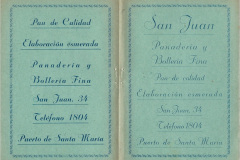 Pan de Calidad
Elaboración esmerada
Panadería y
Bollería Fina
San Juan, 34
Teléfono 1804
Puerto de Santa María
San Juan
Panadería y
Bollería Fina
Pan de calidad
Elaboración esmerada
San Juan, 34
Teléfono 1804
Puerto de Santa María